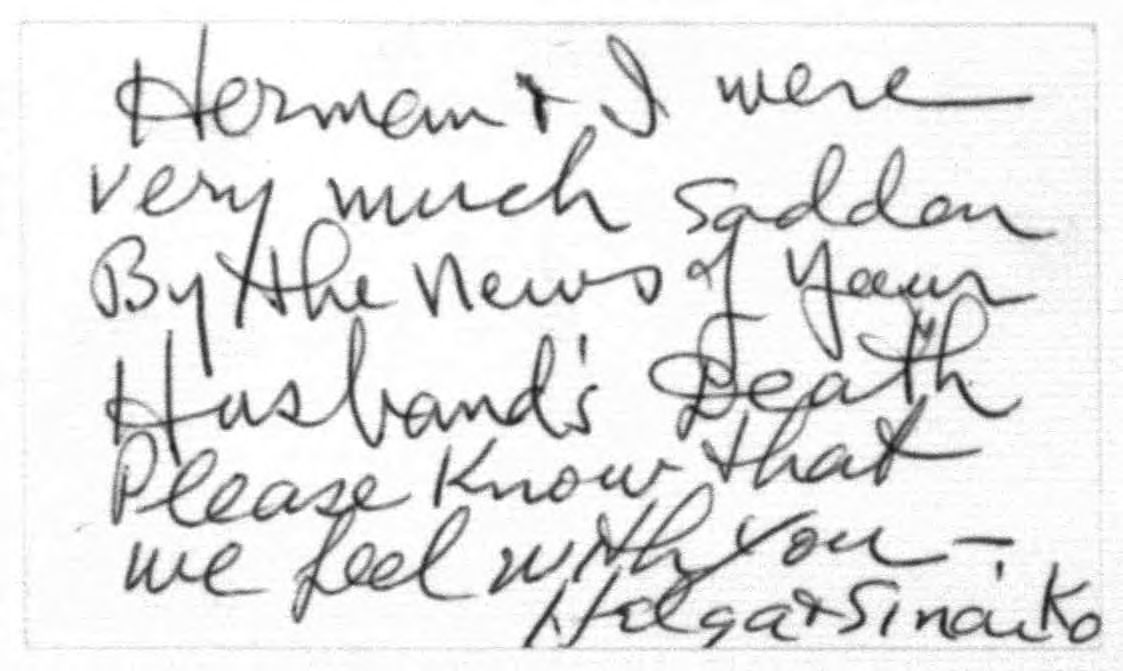 Herman + I were
very much sadden
By the News of your
Husband's Death
Please Know that
we feel with you —
Helga + Sinaiko